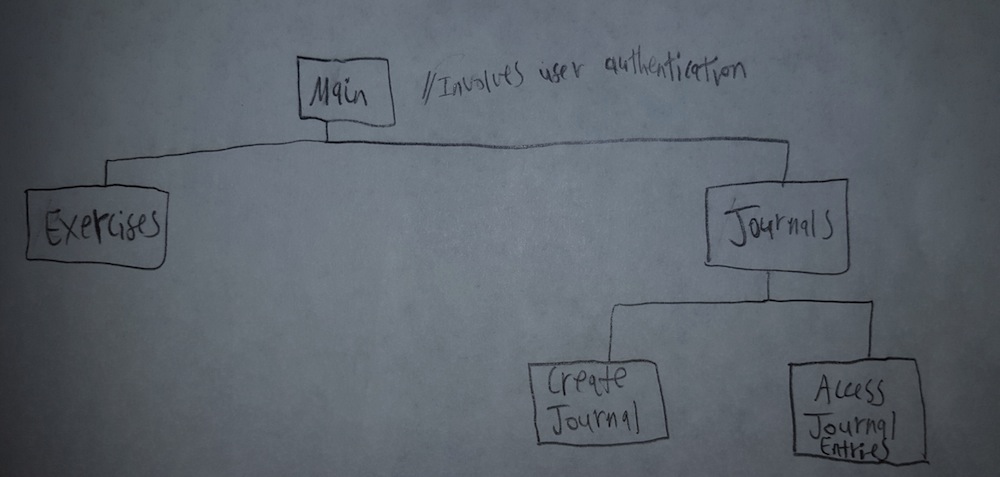 Main
//Involves user authentication
Exercises
Journals
Create
Journal
Access
Journal
Entries